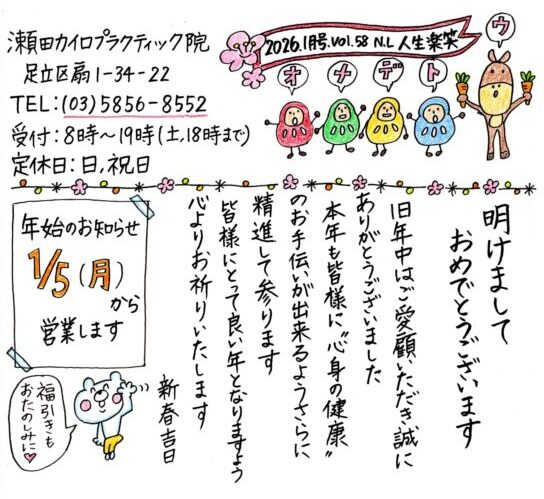 瀬田カイロプラクティック院
足立区扇1-34-22
TEL:(03)5856-8552
受付:8時〜19時(土,18時まで)
定休日:日,祝日
2026.1月号.vol.58 N.L 人生楽笑
オ
メ
デ
ト
ウ
明けまして
おめでとうございます
旧年中はご愛顧いただき誠に
ありがとうございました
本年も皆様に〝心身の健康〟
のお手伝いが出来るようさらに
精進して参ります
皆様にとって良い年となりますよう
心よりお祈りいたします
新春吉日
年始のお知らせ
1/5(月)
から
営業します
福引きも
おたのしみに♡